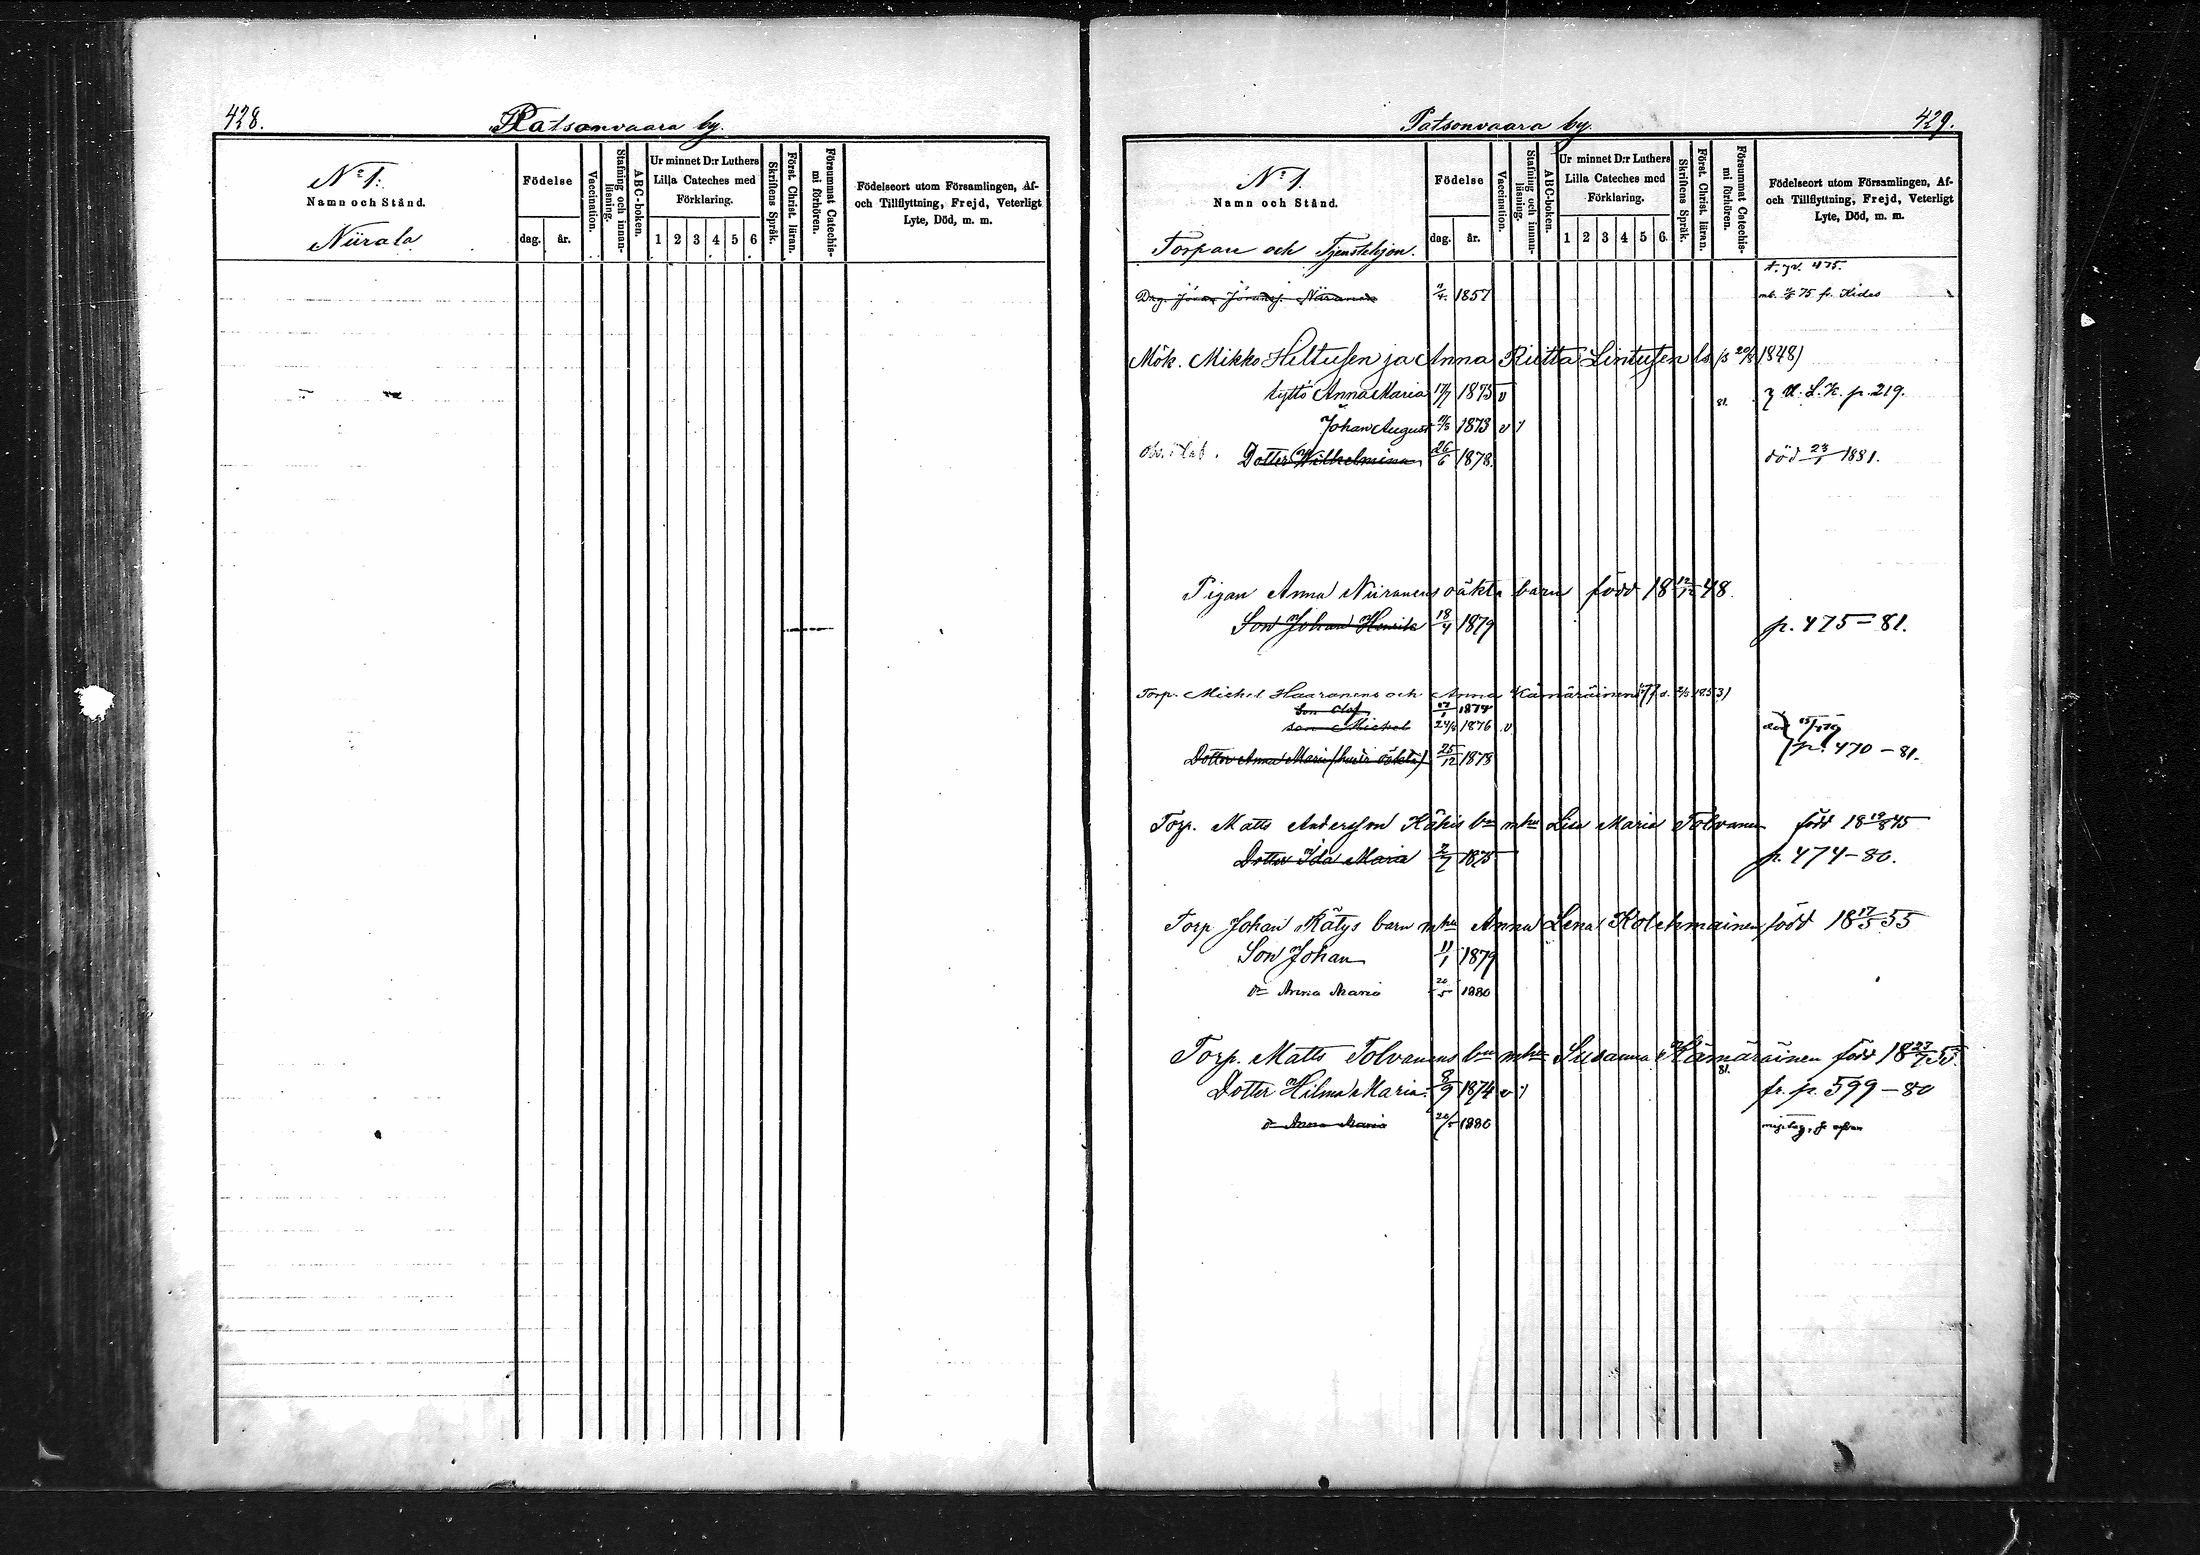 428.
Patsonvaara by.
Nº 1.
Namn och Stånd.
Niirala
Födelse
dag.
år.
Vaccination.
Stafning och innan-
läsning.
ABC-boken.
Ur minnet D:r Luthers
Lilla Cateches med
Förklaring.
1 2 3 4 5 6
Skriftens Språk.
Först. Christ. läran.
Försummat Catechis-
mi förhören.
Födelseort utom Församlingen, Af-
och Tillflyttning, Frejd, Veterligt
Lyte, Död, m. m.
Patsonvaara by.
429.
Nº 1.
Namn och Stånd.
Torpare och Tjenstehjon.
Födelse
dag.
år.
Vaccination.
Stafning och innan-
läsning.
ABC-boken.
Ur minnet D:r Luthers
Lilla Cateches med
Förklaring.
1 2 3 4 5 6
Skriftens Språk.
Först. Christ. läran.
Försummat Catechis-
mi förhören.
Födelseort utom Församlingen, Af-
och Tillflyttning, Frejd, Veterligt
Lyte, Död, m. m.
475.
Drg. Niiranen 1857 75 fr. Kides
Mök. Mikko Hiltusen ja Anna Riitta Lintusen 1848)
tyttö Anna Maria 17/7 1875 v 81. L. K. p. 219.
Johan August 1873 v
Dotter Wilhelmina 26/6 1878. död 23/1 1881.
Pigan Anna Niiranens oäkta barn född 18 12/12 48.
Son Johan Henrik 18/4 1879 p. 475-81.
Torp. Michel Haaranens och Anna Kämäräinens 1853)
Son Olof 1874
son Michel 1876 v
Dotter Anna Maria 25/12 1878 p. 470-81.
Torp. Matts Andersson Kähis bn mhu Lisa Maria Tolvanen född 18 45
Dotter Ida Maria 2/7 1875 p. 474-80.
Torp Johan Kätys barn mhu Anna Lena Kolehmainen född 18 17/5 55
Son Johan 11/1 1879
Dr Anna Maria 20/5 1880
Torp. Matts Tolvanens bn mhu Susanna Kämäräinen född 18 23/7 55.
Dotter Hilma Maria 8/9 1874 v 81. fr. p. 599-80
Dr Anna Maria 20/5 1880